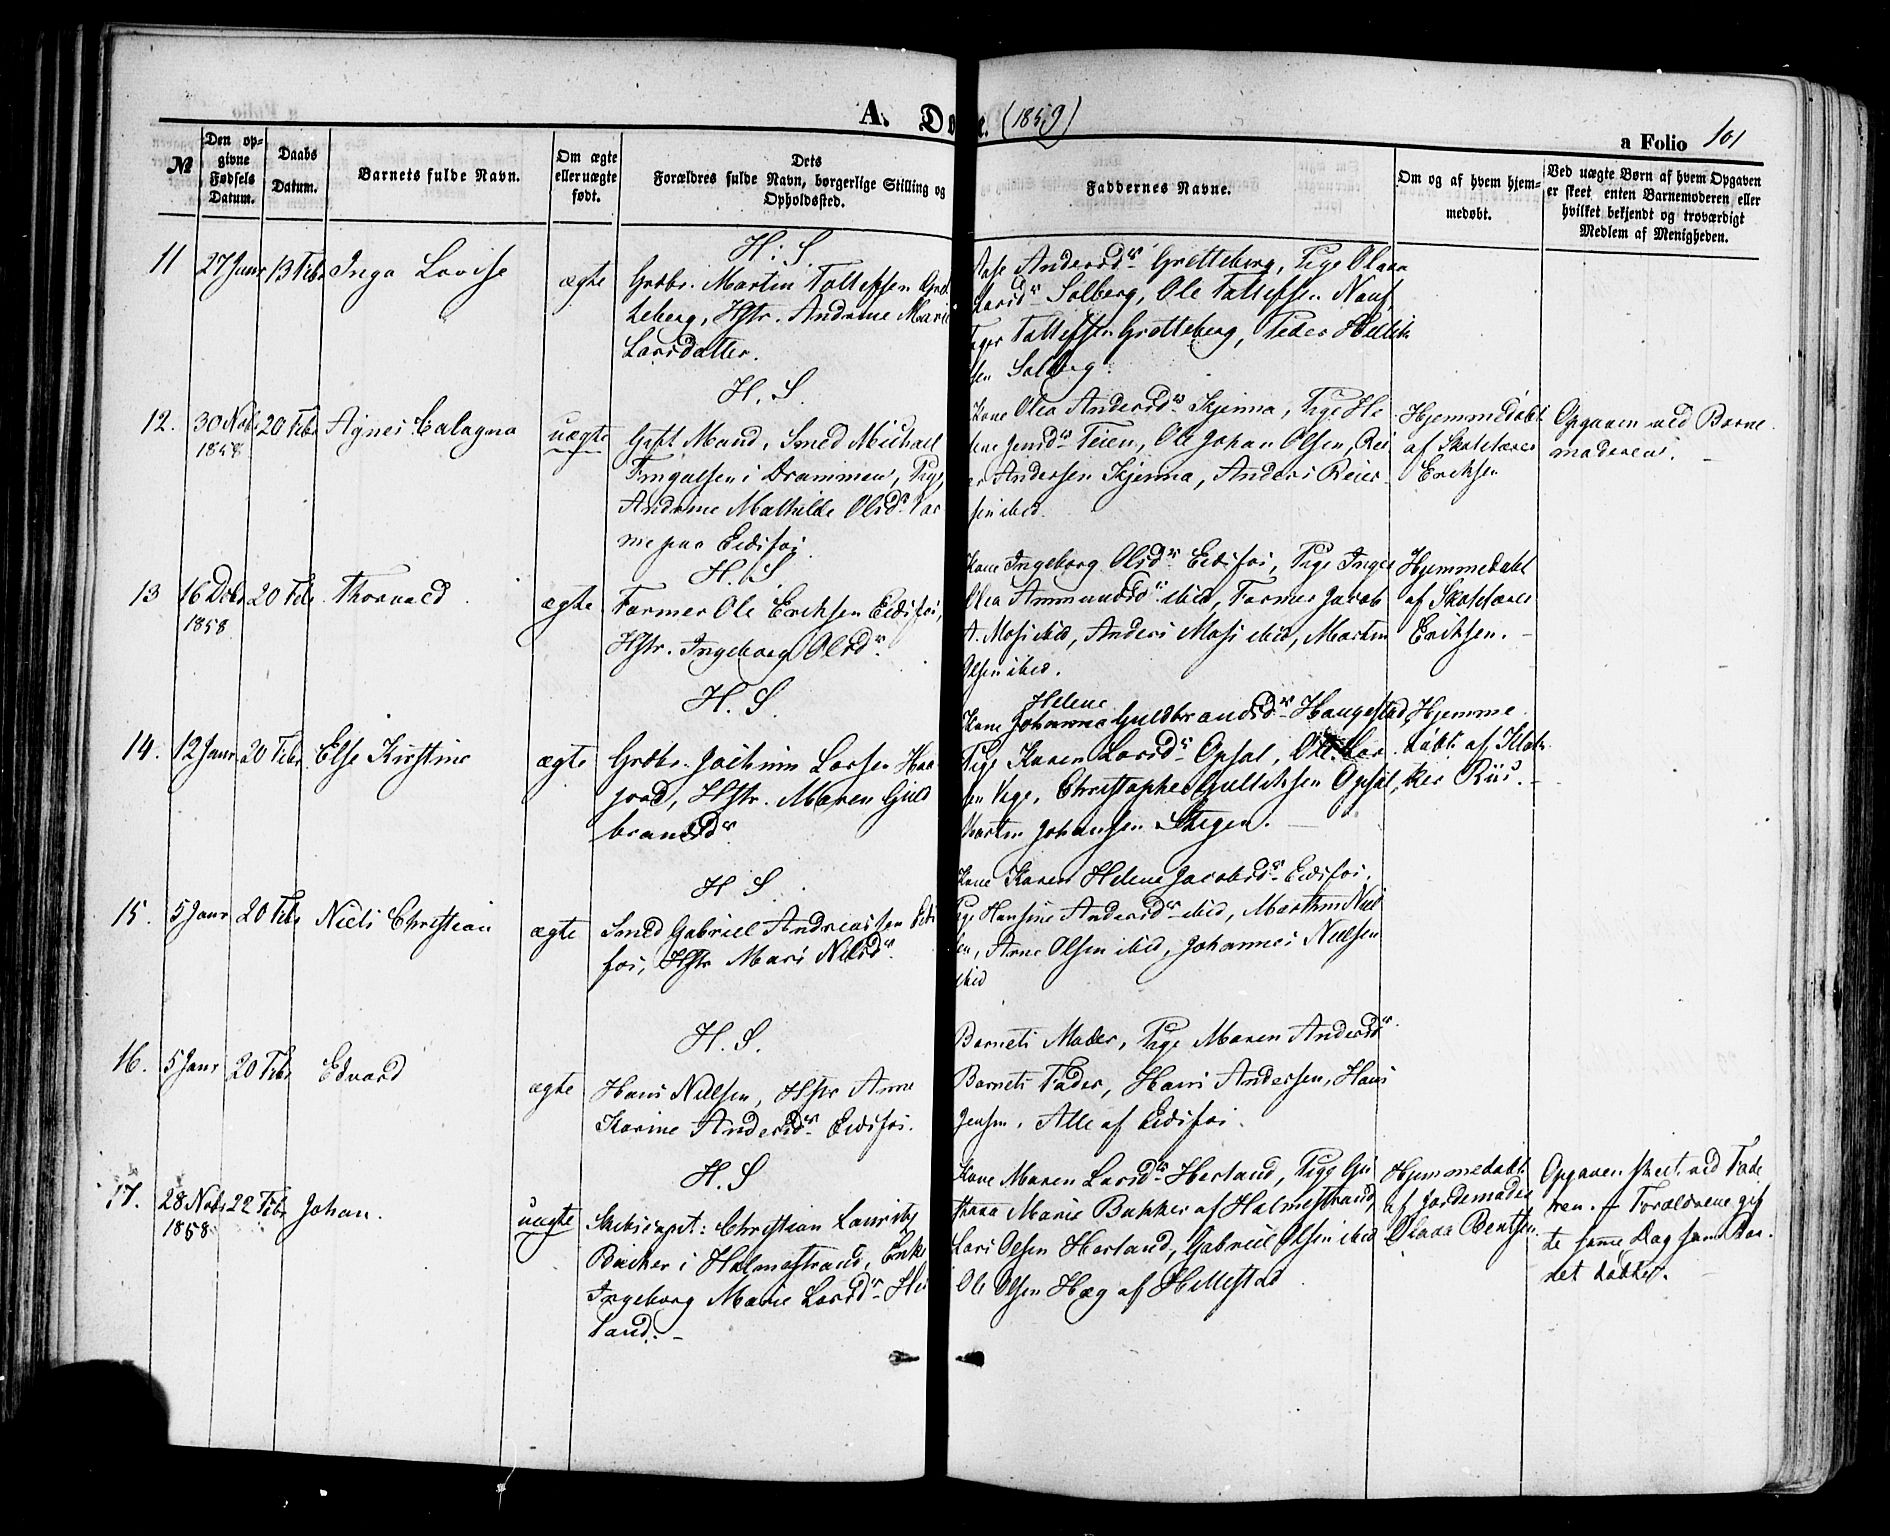 A. Døbte. (1859)
a Folio 101
№
Den op-
givne
Fødsels
Datum.
Daabs
Datum.
Barnets fulde Navn.
Om ægte
eller uægte
født.
Dets
Forældres fulde Navn, borgerlige Stilling og
Opholdssted.
Faddernes Navne.
Om og af hvem hjem-
medøbt.
Ved uægte Børn af hvem Opgaven
er skeet enten Barnemoderen eller
hvilket bekjendt og troværdigt
Medlem af Menigheden.
H: S
11 27 Janr 13 Febr Inga Lovise ægte
Grdbr. Martin Tollefsen Grøt
teberg, Hstr. Andrine Marie
Larsdatter.
Aase Andersdr Grøtteberg, Pige Olava
Larsdr Solberg, Ole Tollefsen Nauf
Tollefsen Grøtteberg, Peder Hellik
sen Solberg.
H. S.
12. 30 Nobr 20 Febr Agnes Calagna uægte
1858
Gift Mand, Smed Michael
Fingalsen i Drammen, Pige
Andrine Mathilde Olsdr
paa Eidsfos.
Kone Olea Andersdr Kjenna, Pige He
lene Jensdr Teien, Ole Johan Olsen, Rei
er Andersen Kjenna, Anders Reier
sen ibid.
Hjemmedøbt
af Skolelærer
Eriksen
Opgaven ved Barne
moderen.
H. S.
13 16 Debr 20 Febr Thorvald ægte
1858
Former Ole Eriksen Eidsfos,
Hstr. Ingeborg Olsdr
Kone Ingeborg Olsdr Eidsfos, Pige Inger
Olea Ammundsdr ibid, Former Jacob
A. Moss ibid, Anders Moss ibid, Martin
Olsen ibid.
Hjemmedøbt
af Skolelærer
Eriksen.
H. S.
14. 12 Janr 20 Febr Else Kirstine ægte
Grdbr. Jochim Larsen Haa
jord, Hstr. Maren Guld
brandsdr
Helene
Kone Johanna Guldbrandsdr Haugestad
Pige Karen Larsdr Opsal, Ole Lar
sen Vige, Christopher Gulliksen Opsal,
Martin Johansen Stigen.
Hjemme
døbt af Klok
ker Riis.
H S.
15. 5 Janr 20 Febr Niels Christian ægte
Smed Gabriel Andreassen Eids
fos, Hstr Mari Nilsdr
Kone Karen Helene Jacobsdr Eidsfos,
Pige Hansine Andersdr ibid, Marthin Niel
sen, Arne Olsen ibid, Johannes Nielsen
ibid
H. S.
16. 5 Janr 20 Febr Edvard ægte
Hans Nielsen, Hstr Anne
Karine Andersdr Eidsfos.
Barnets Moder, Pige Maren Andersdr
Barnets Fader, Hans Andersen, Hans
Jensen. Alle af Eidsfos.
H. S
17. 28 Nobr 22 Febr Johan. uægte
1858
Skibscapt: Christian Lauritz
Backer i Holmestrand, Enke
Ingeborg Marie Larsdr Her
land.
Kone Maren Larsdr Herland, Pige Gu
Marie Bakker af Holmestrand,
Lars Olsen Herland, Gabriel Olsen ibid
Ole Olsen Hæg af Hillestad
Hjemmedøbt
af Jordemoder
Olava Bentsen.
Opgaven skeet ved Fade
ren. Forældrene gif
te samme Dag som Bar
net døbtes.